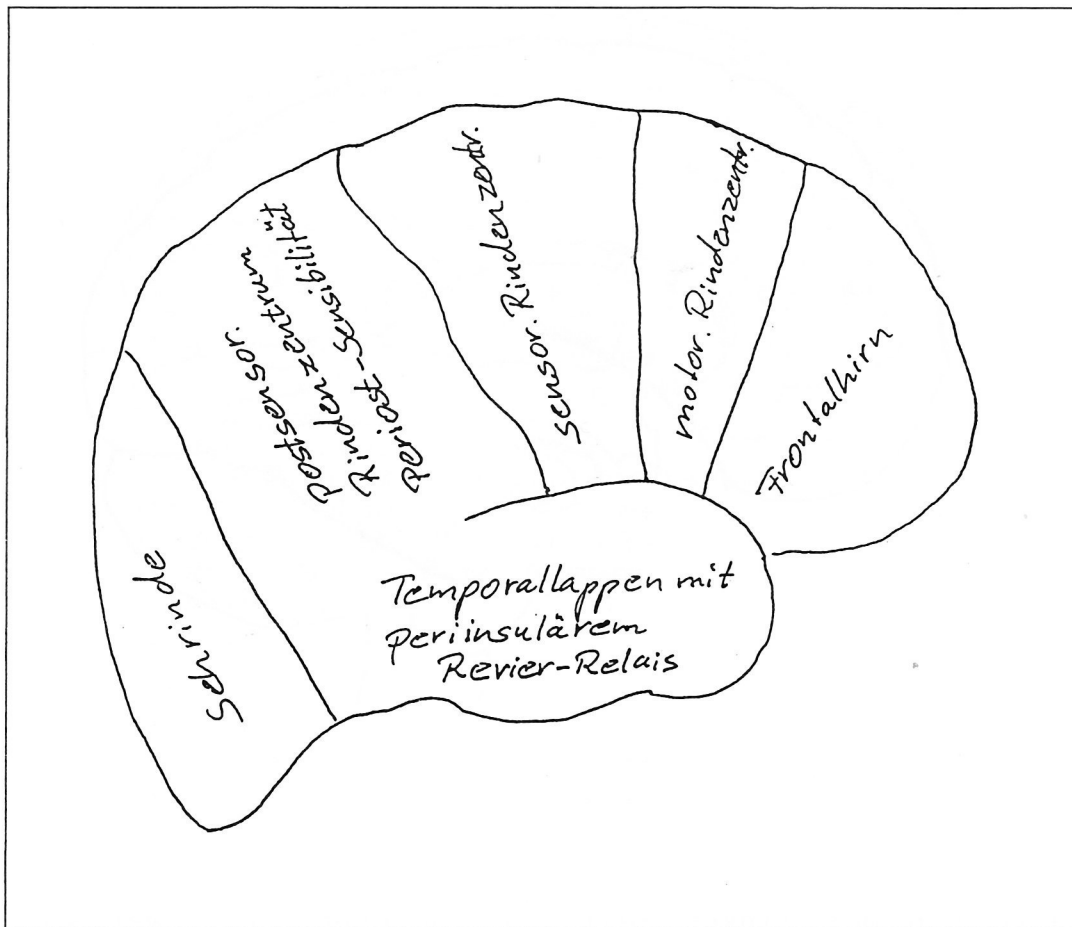 Sehrinde
postsensor.
Rindenzentrum
Periost-Sensibilität
sensor. Rindenzentr.
motor. Rindenzentr.
Frontalhirn
Temporallappen mit
periinsulärem
Revier-Relais